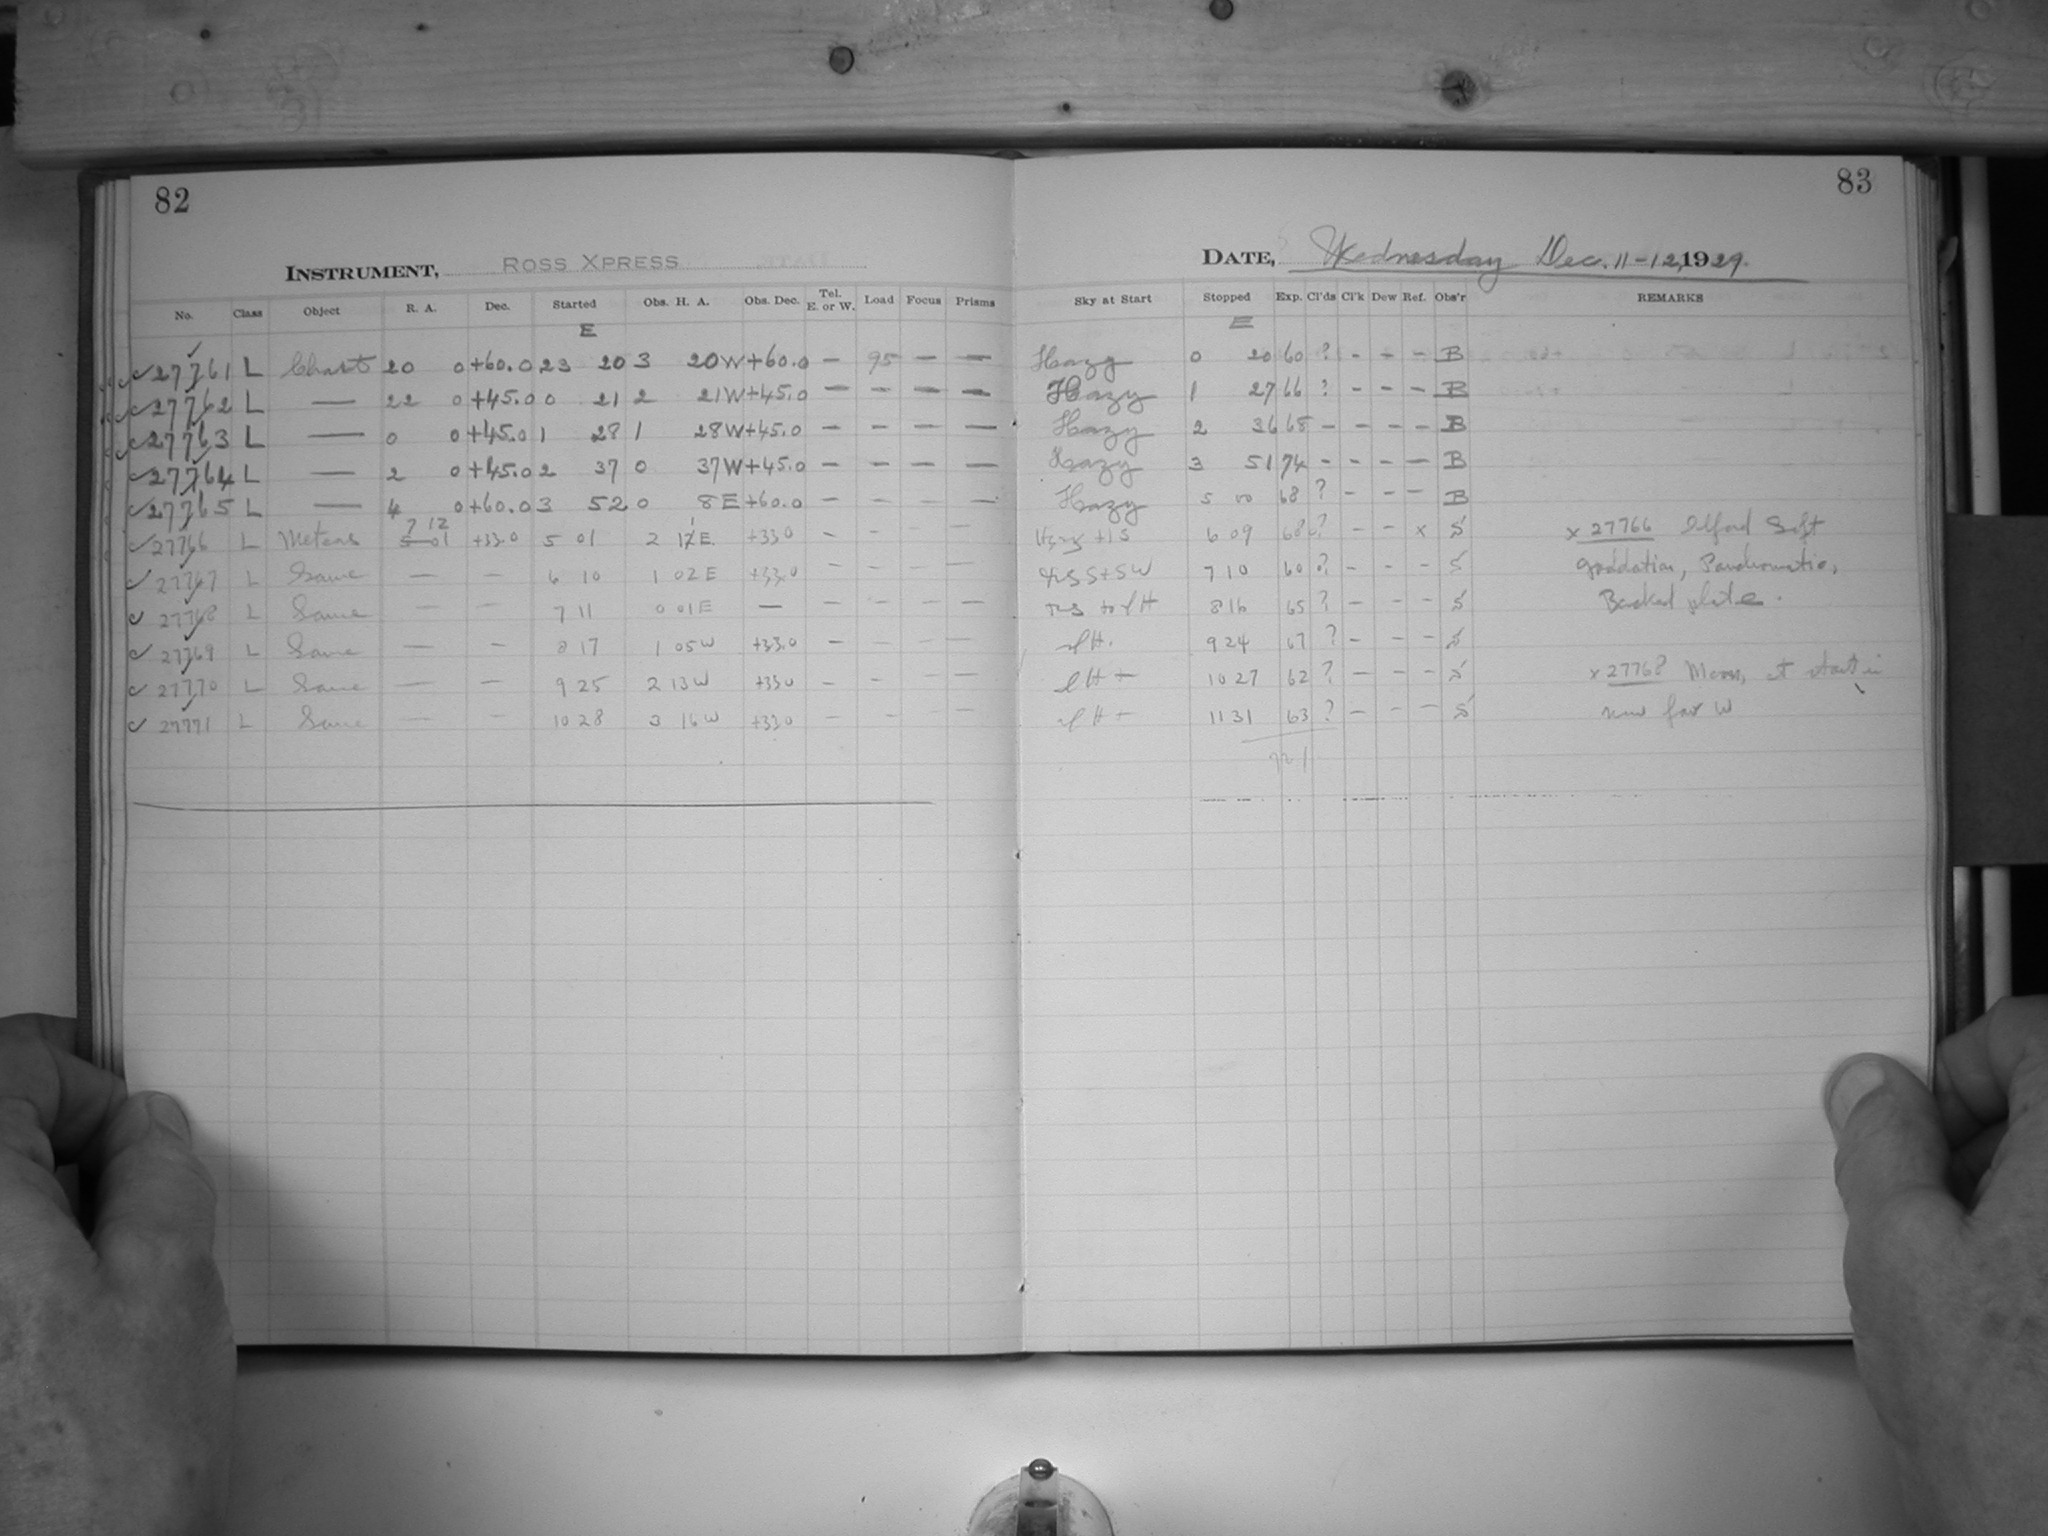 82
INSTRUMENT, ROSS XPRESS
No. Class Object R. A. Dec. Started Obs. H. A. Obs. Dec. Tel. E. or W. Load Focus Prisms
E
27761 L Chart 20 0 +60.0 23 20 3 20W +60.0 — 95 — —
27762 L — 22 0 +45.0 0 21 2 21W +45.0 — — — —
27763 L — 0 0 +45.0 1 28 1 28W +45.0 — — — —
27764 L — 2 0 +45.0 2 37 0 37W +45.0 — — — —
27765 L — 4 0 +60.0 3 52 0 8E +60.0 — — — —
7 12
27766 L Meteors 5 01 +33.0 5 01 2 11E +33.0 — — — —
27767 L Same — — 6 10 1 02E +33.0 — — — —
27768 L Same — — 7 11 0 01E — — — — —
27769 L Same — — 8 17 1 05W +33.0 — — — —
27770 L Same — — 9 25 2 13W +33.0 — — — —
27771 L Same — — 10 28 3 16W +33.0 — — — —
83
DATE, Wednesday Dec. 11-12, 1929.
Sky at Start Stopped Exp. Cl'ds Cl'k Dew Ref. Obs'r REMARKS
E
Hazy 0 20 60 ? - - - B
Hazy 1 27 66 ? - - - B
Hazy 2 36 68 - - - - B
Hazy 3 51 74 - - - - B
Hazy 5 00 68 ? - - - B
Hazy + 1 S 6 09 68 ? - - x S x 27766 Ilford Soft
S + SW 7 10 60 ? - - - S graddation, Panchromatic,
to 8 16 65 ? - - - S Backed plate.
H. 9 24 67 ? - - - S
H — 10 27 62 ? - - - S x 27768 Moon, at start is
H — 11 31 63 ? - - - S now far W
721